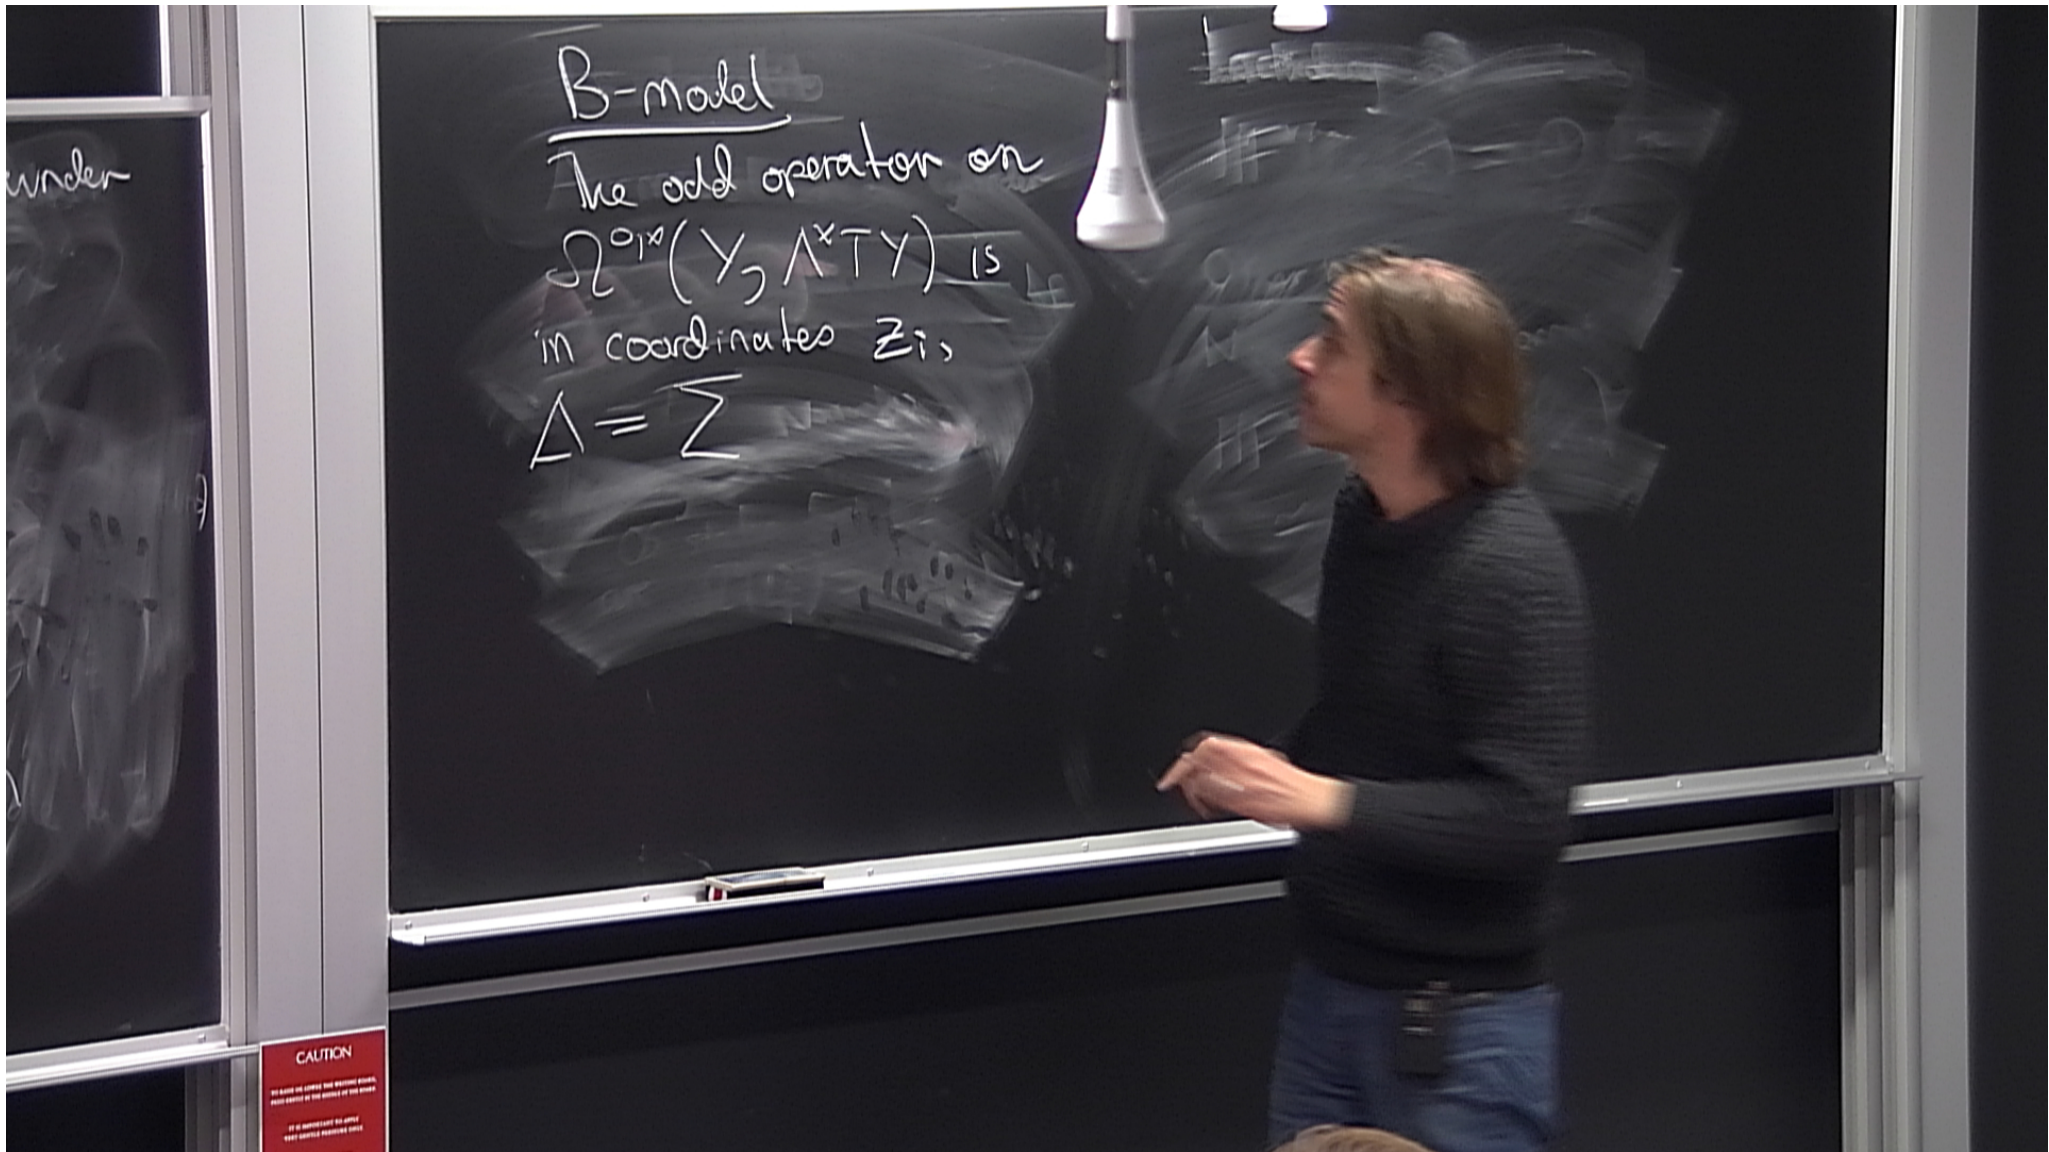 under
B-model
The odd operator on
Ω^{0,*}(Y, Λ^*TY) is
in coordinates z_i,
Δ = Σ
CAUTION